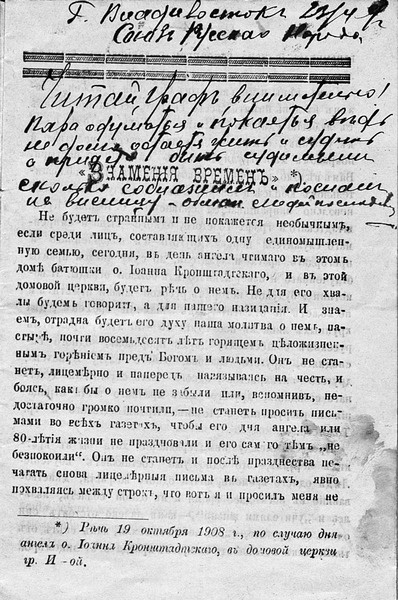 Г. Владивостокъ
Союзъ Русскаго Народа
Читай графъ внимательно!
Пора одуматься и покаяться вѣдь
не долго остается жить и
а быть
сколько соблазнилъ и послалъ
на висѣлицу
«ЗНАМЕНІЯ ВРЕМЕНЪ» *)
Не будетъ страннымъ и не покажется необычнымъ,
если среди лицъ, составляющихъ одну единомышлен-
ную семью, сегодня, въ день ангела чтимаго въ этомъ
домѣ батюшки о. Іоанна Кронштадскаго, и въ этой
домовой церкви, будетъ рѣчь о немъ. Не для его хва-
лы будемъ говорить, а для нашего назиданія. И зна-
емъ, отрадна будетъ его духу наша молитва о немъ, па-
стырѣ, почти восемьдесятъ лѣтъ горящемъ цѣложизнен-
нымъ горѣніемъ предъ Богомъ и людьми. Онъ не ста-
нетъ, лицемѣрно и напередъ навязываясь на честь, и
боясь, какъ бы о немъ не забыли или, вспомнивъ, не-
достаточно громко почтили,—не станетъ просить пись-
мами во всѣхъ газетахъ, чтобы его дня ангела или
80-лѣтія жизни не праздновали и его самого тѣмъ „не
безпокоили“. Онъ не станетъ и послѣ празднества пе-
чатать снова лицемѣрныя письма въ газетахъ, явно
похваляясь между строкъ, что вотъ я и просилъ меня не
*) Рѣчь 19 октября 1908 г., по случаю дня
ангела о. Іоанна Кронштадтскаго, въ домовой церкви
гр. И—ой.